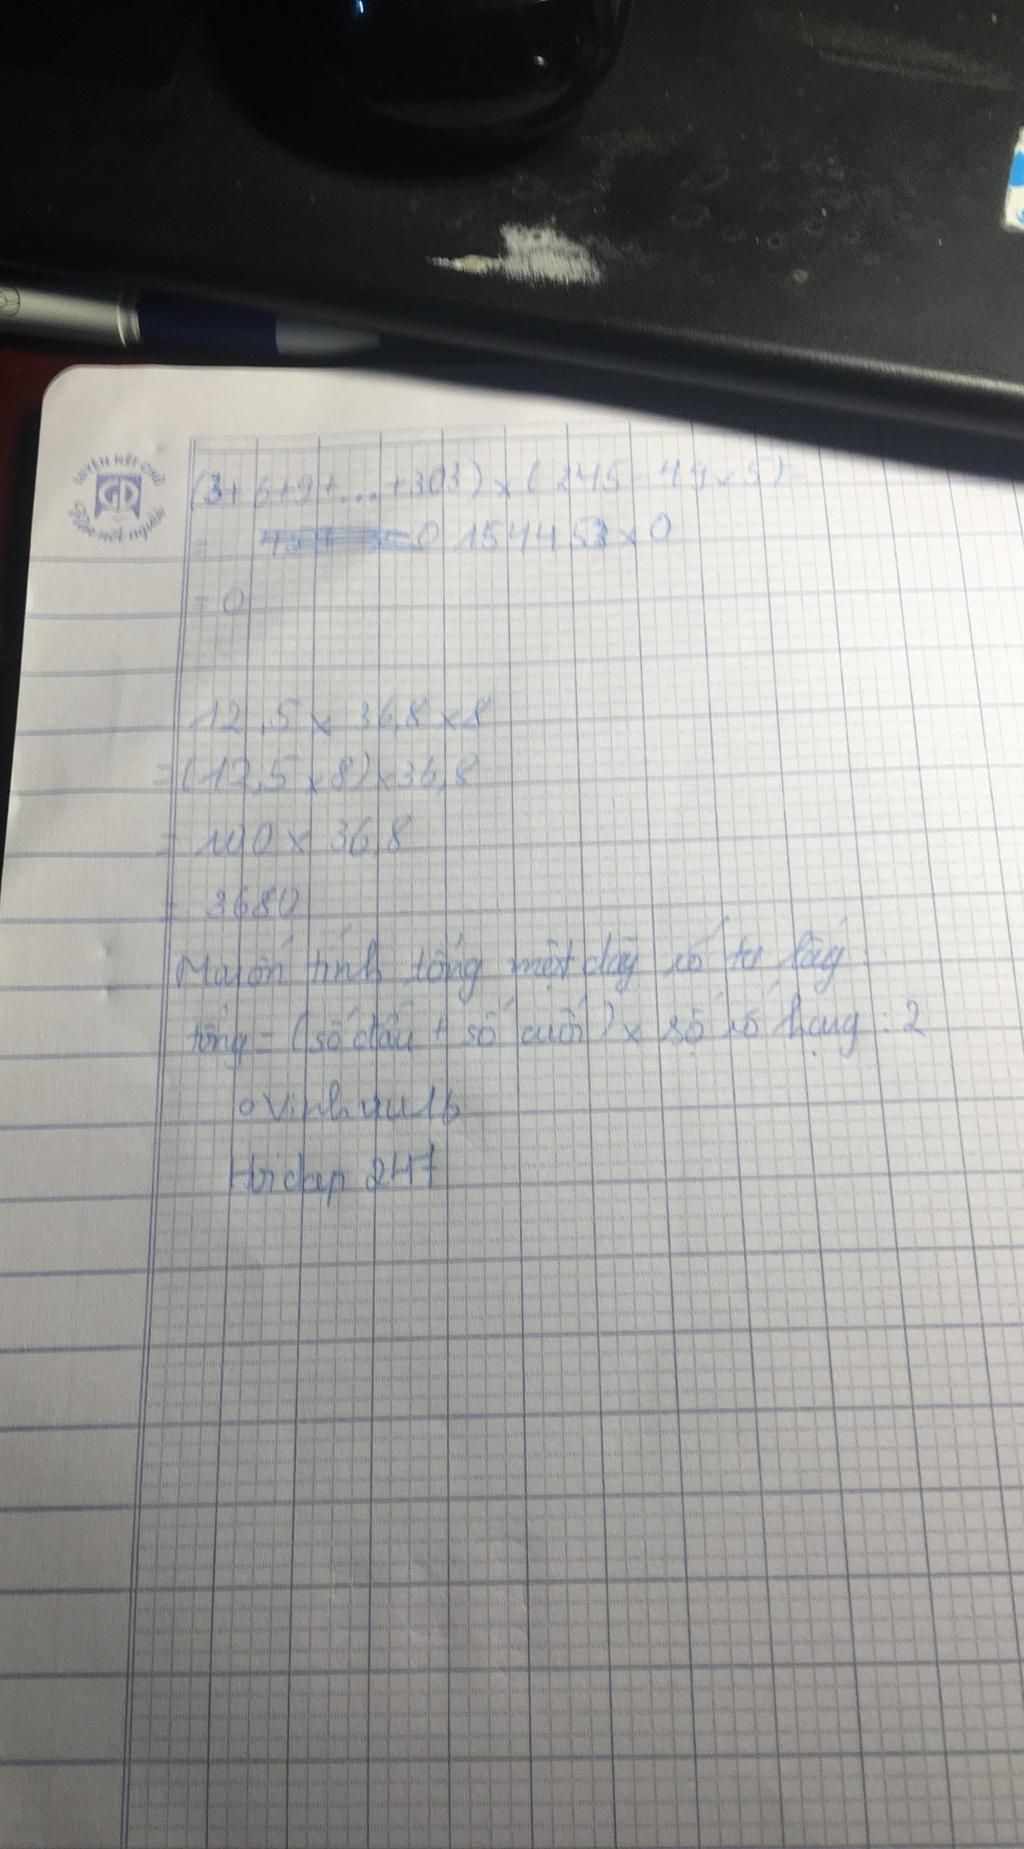 LUYỆN NÉT CHỮ
GD
Rèn nết người
(3+6+9+...+303)×(245-49×5)
= 0 154453×0
= 0
12,5× 36,8×8
=(12,5×8)×36,8
= 100× 36,8
= 3680
Muốn tính tổng một dãy số ta lấy
tổng = (số đầu + số cuối)× số số hạng : 2
Hoidap 247